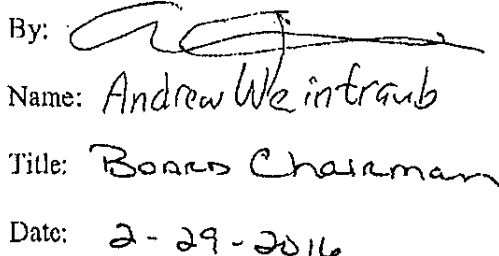 By:
Name: Andrew Weintraub
Title: Board Chairman
Date: 2-29-2016